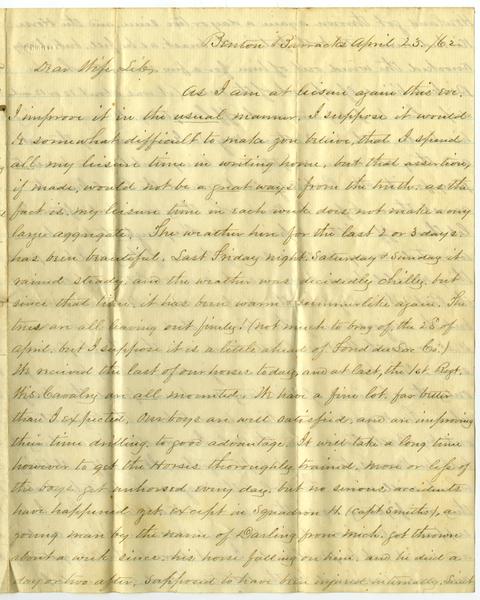 Benton Barracks April 23. /62
Dear Wife
As I am at leisure again this eve,
I improve it in the usual manner. I suppose it would
be somewhat difficult to make you believe, that I spend
all my leisure time in writing home, but that assertion,
if made, would not be a great ways from the truth, as the
fact is, my leisure time in each week does not make a very
large aggregate. The weather here for the last 2 or 3 days
has been beautiful. Last Friday night, Saturday & Sunday it
rained steady, and the weather was decidedly chilly, but
since that time, it has been warm & summerlike again. The
trees are all leaving out finely! (not much to brag of, the 23 of
April, but I suppose it is a little ahead of Fond du Lac Co.)
We received the last of our horses today, and at last, the 1st. Regt.
Wis. Cavalry are all mounted. We have a fine lot, far better
than I expected, Our boys are well satisfied, and are improving
their time drilling, to good advantage. It will take a long time
however to get the Horses thoroughly trained, more or less of
the boys get unhorsed every day, but no serious accidents
have happened yet, except in Squadron H. (Capt Smiths), a
young man by the name of Darling from Mich. got thrown
about a week since, his horse falling on him, and he died a
day or two after. Supposed to have been injured internally,